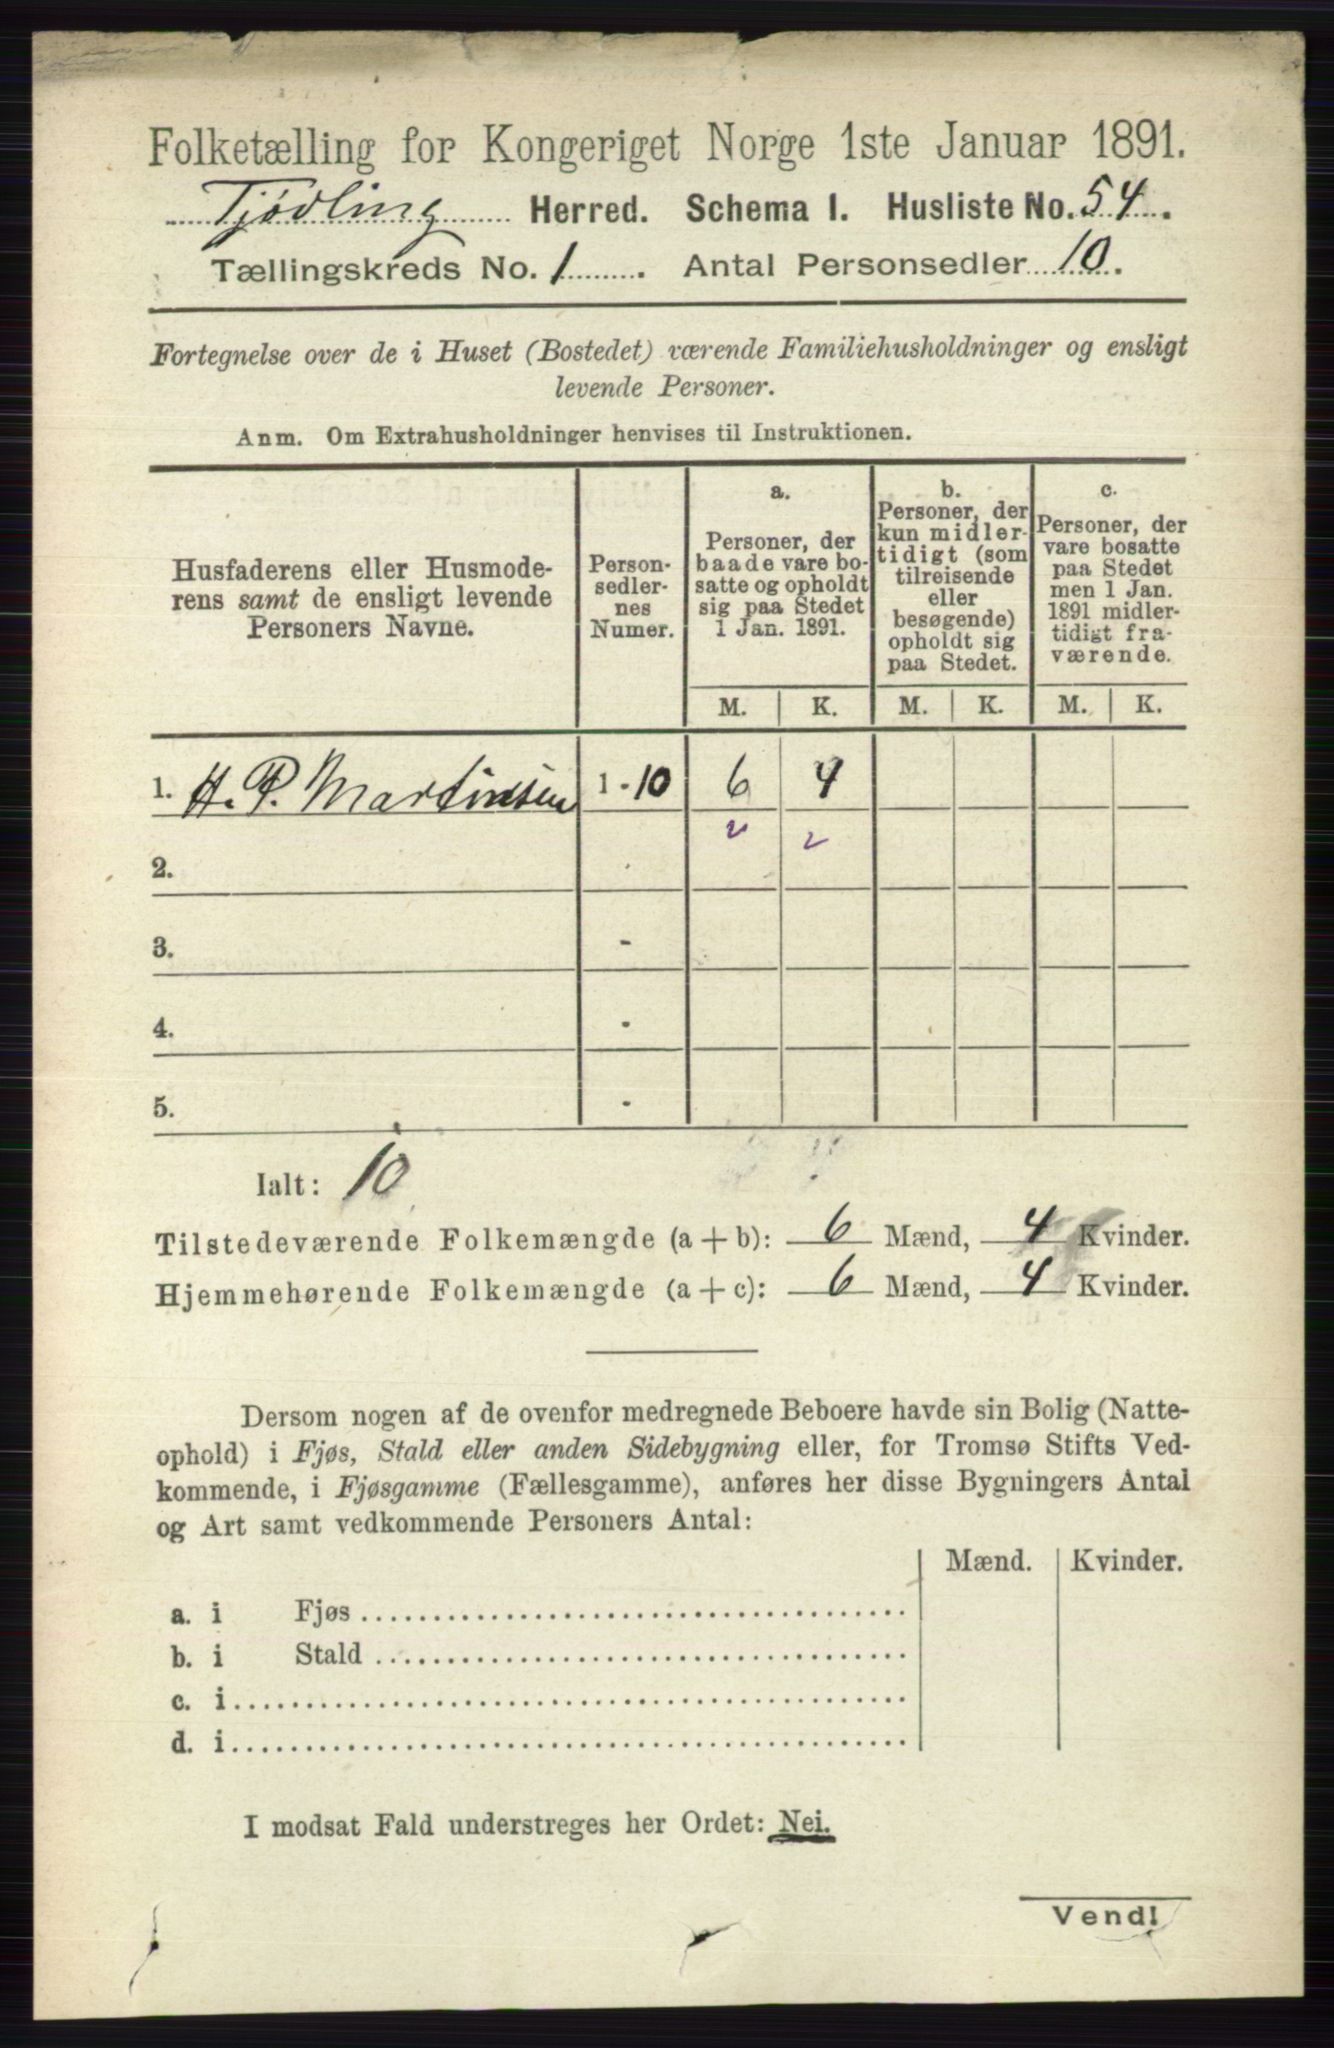 Folketælling for Kongeriget Norge 1ste Januar 1891.
Tjødling Herred. Schema I. Husliste No. 54.
Tællingskreds No. 1. Antal Personsedler 10.
Fortegnelse over de i Huset (Bostedet) værende Familiehusholdninger og ensligt
levende Personer.
Anm. Om Extrahusholdninger henvises til Instruktionen.
Husfaderens eller Husmode-
rens samt de ensligt levende
Personers Navne.
Person-
sedler-
nes
Numer.
a.
Personer, der
baade vare bo-
satte og opholdt
sig paa Stedet
1 Jan. 1891.
b.
Personer, der
kun midler-
tidigt (som
tilreisende
eller
besøgende)
opholdt sig
paa Stedet.
c.
Personer, der
vare bosatte
paa Stedet
men 1 Jan.
1891 midler-
tidigt fra-
værende.
M. K. M. K. M. K.
1. H. P. Martinsen 1 - 10 6 4
2 2
2.
3. -
4. -
5. -
Ialt: 10
Tilstedeværende Folkemængde (a + b): 6 Mænd, 4 Kvinder.
Hjemmehørende Folkemængde (a + c): 6 Mænd, 4 Kvinder.
Dersom nogen af de ovenfor medregnede Beboere havde sin Bolig (Natte-
ophold) i Fjøs, Stald eller anden Sidebygning eller, for Tromsø Stifts Ved-
kommende, i Fjøsgamme (Fællesgamme), anføres her disse Bygningers Antal
og Art samt vedkommende Personers Antal:
Mænd. Kvinder.
a. i Fjøs
b. i Stald
c. i
d. i
I modsat Fald understreges her Ordet: Nei.
Vend!